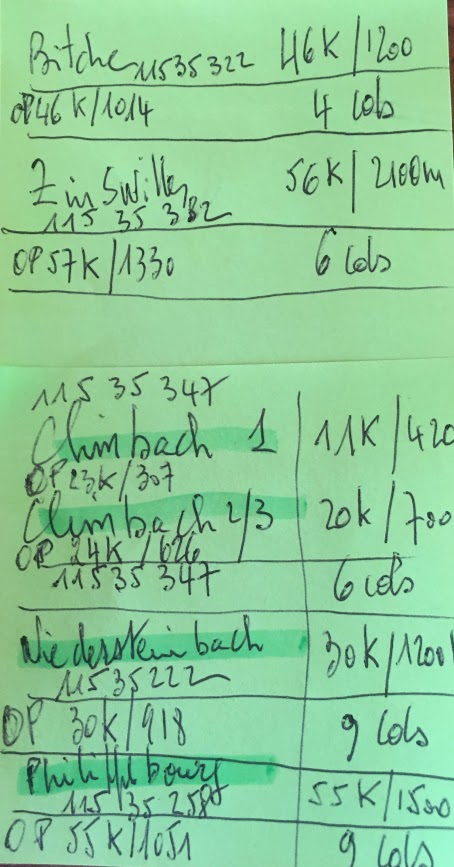 Bitche 11535322 46K/1200
OP 46K/1014 4 Cols
Zinswiller 56K/2100m
115 35 382
OP 57K/1330 6 Cols
115 35 347
Climbach 1 11K/420
OP 23K/307
Climbach 2/3 20K/700
OP 24K/626
115 35 347 6 Cols
Niedersteinbach 30K/1200
11535222
OP 30K/918 9 Cols
Philippsbourg 55K/1500
115 35 258
OP 55K/1051 9 Cols